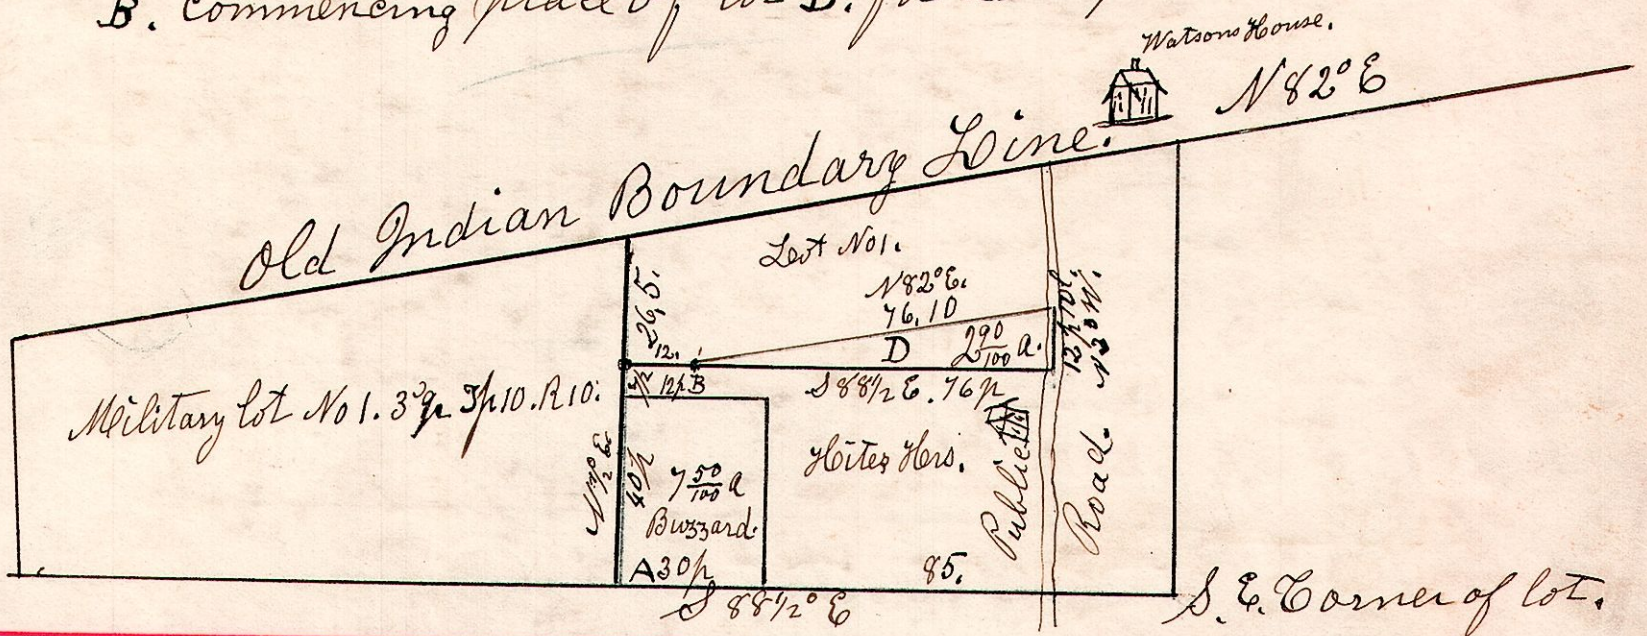 B. Commencing place of
Watsons House.
N 82° E
Old Indian Boundary Line.
Lot No1.
N82°E.
76,10
26,5.
12.
D
2 90/100 a.
12p 10l.
N2°W.
12p B
S 88 1/2 E. 76p
Military lot No 1. 3d qr Tp10. R10.
40p
7 50/100 a
Buzzard.
Hites Hrs.
Public
Road.
A 30p
85.
S 88 1/2° E
S. E. Corner of lot.